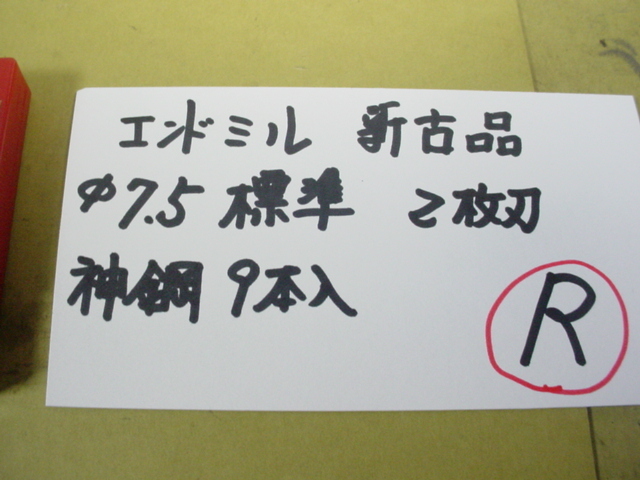 エンドミル 新古品
φ7.5 標準 2枚刃
神鋼 9本入
R